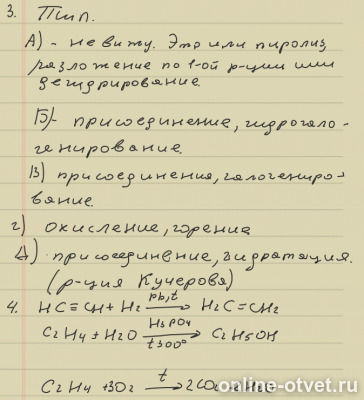 3. Тип.
А) - не вижу. Это или пиролиз,
разложение по 1-ой р-ции или
дегидрирование.
Б)- присоединение, гидрогало-
генирование.
В) присоединения, галогениро-
вание.
г) окисление, горение
Д) присоединение, гидратация.
(р-ция Кучерова)
4. HC≡CH + H2 →(pb,t) H2C=CH2
C2H4 + H2O →(H3PO4, t300°) C2H5OH
C2H4 + 3O2 →(t) 2CO2 + 2H2O
online-otvet.ru